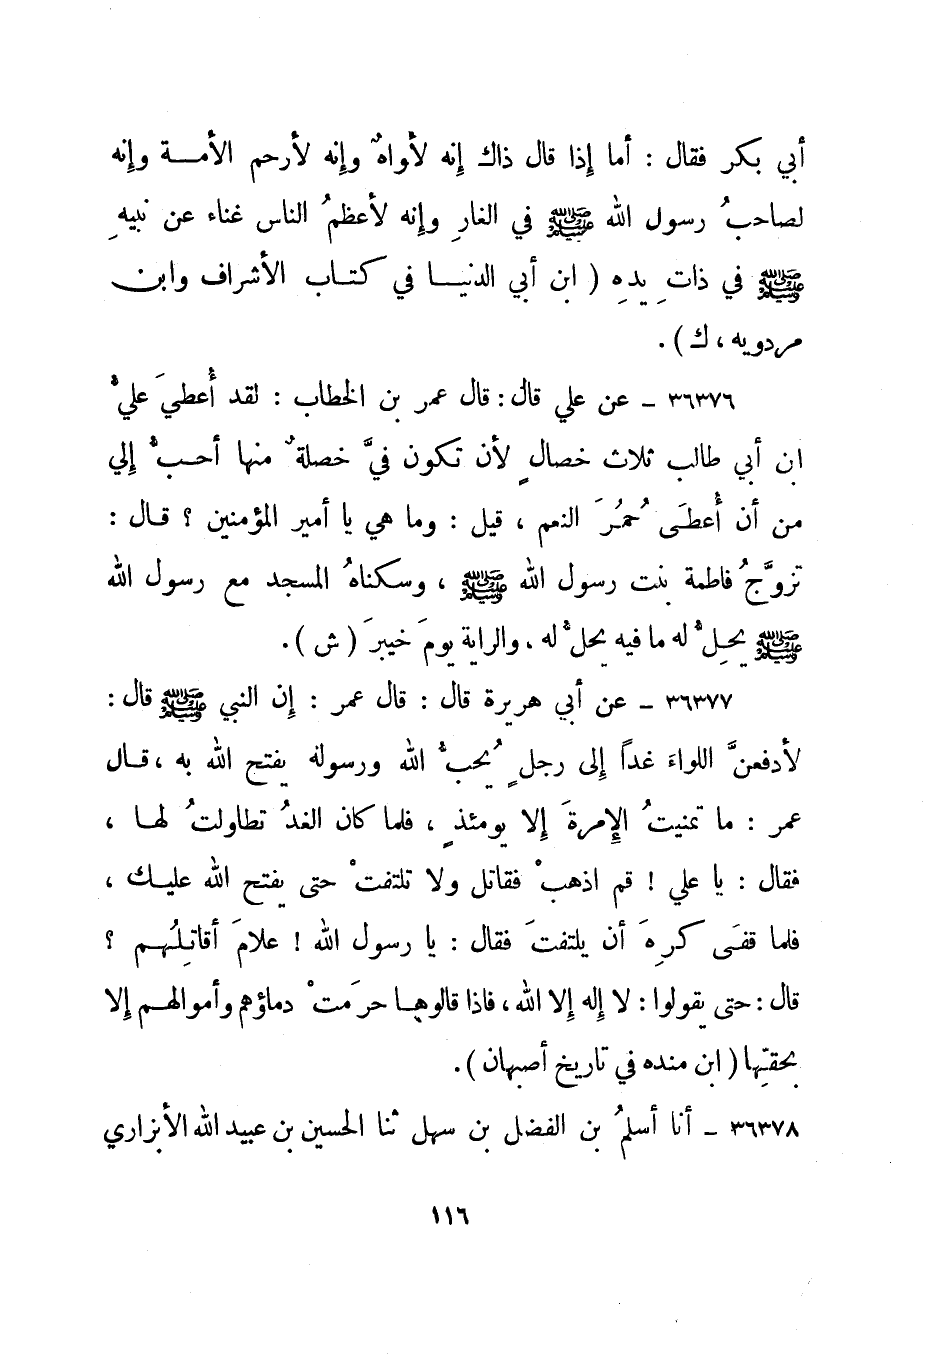 أبي بكر فقال : أما إذا قال ذاك إنه لأواهٌ وإنه لأرحم الأمة وإنه
لصاحبُ رسول الله ﷺ في الغارِ وإنه لأعظمُ الناس غناء عن نبيهِ
ﷺ في ذاتِ يدهِ ( ابن أبي الدنيا في كتاب الأشراف وابن
مردويه ، ك ) .
٣٦٣٧٦ ـ عن علي قال : قال عمر بن الخطاب : لقد أُعطيَ عليُّ
ابن أبي طالب ثلاث خصالٍ لأن تكون فيَّ خصلةٌ منها أحبُّ إلي
من أن أُعطَى حُمُرَ النعم ، قيل : وما هي يا أمير المؤمنين ؟ قال :
تزوَّجُ فاطمة بنت رسول الله ﷺ ، وسكناهُ المسجد مع رسول الله
ﷺ يحِلُّ له ما فيه يحلُّ له ، والراية يومَ خيبرَ ( ش ) .
٣٦٣٧٧ ـ عن أبي هريرة قال : قال عمر : إن النبي ﷺ قال :
لأدفعنَّ اللواءَ غداً إلى رجلٍ يُحبُّ الله ورسوله يفتح الله به ، قال
عمر : ما تمنيتُ الإمرةَ إلا يومئذٍ ، فلما كان الغدُ تطاولتُ لها ،
فقال : يا علي ! قم اذهبْ فقاتل ولا تلتفتْ حتى يفتح الله عليك ،
فلما قفَى كرِهَ أن يلتفتَ فقال : يا رسول الله ! علامَ أقاتلُهم ؟
قال : حتى يقولوا : لا إله إلا الله ، فاذا قالوها حرَمتْ دماؤهم وأموالهم إلا
بحقِّها ( ابن منده في تاريخ أصبهان ) .
٣٦٣٧٨ ـ أنا أسلمُ بن الفضل بن سهل ثنا الحسين بن عبيد الله الأبزاري
١١٦